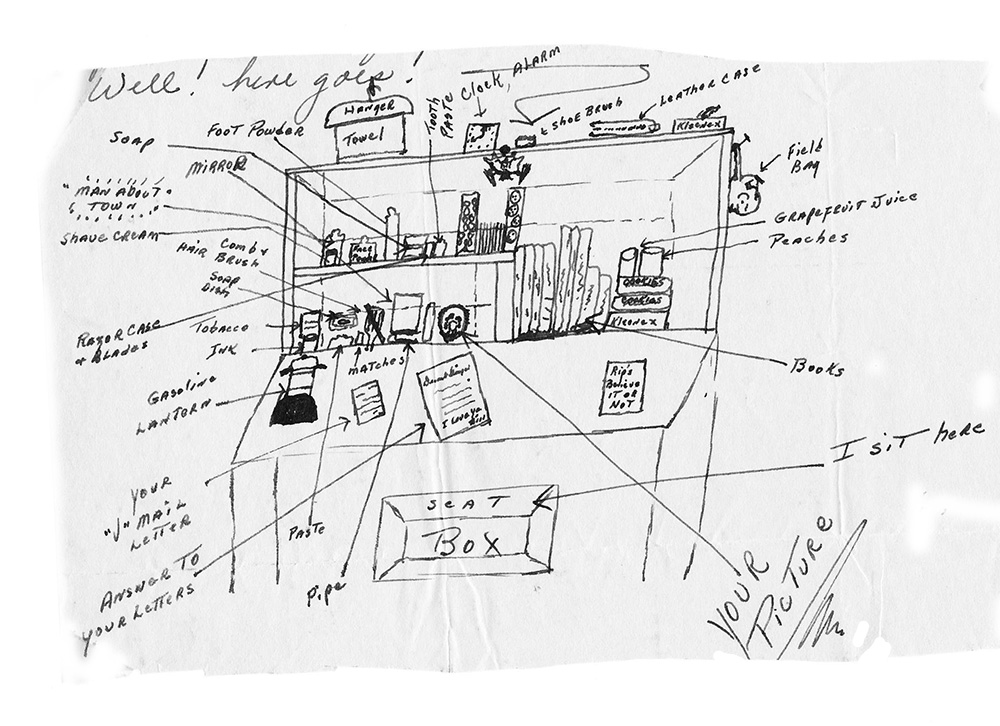 "Well! here goes!
HANGER
Towel
TOOTH
PASTE
CLOCK, ALARM
SHOE BRUSH
LEATHER CASE
KLEENEX
Field
BAG
SOAP
FOOT POWDER
MIRROR
"MAN ABOUT
TOWN"
SHAVE CREAM
HAIR COMB &
BRUSH
SOAP
DISH
FACE
POWDER
GRAPEFRUIT JUICE
PEACHES
COOKIES
COOKIES
KLEENEX
RAZOR CASE
& BLADES
TOBACCO
INK
MATCHES
GASOLINE
LANTORN
BOOKS
I LOVE YA
Rip's
Believe
IT OR
NOT
I SIT here
YOUR
"V" MAIL
LETTER
PASTE
SEAT
BOX
ANSWER TO
YOUR LETTERS
Pipe
YOUR
PICTURE